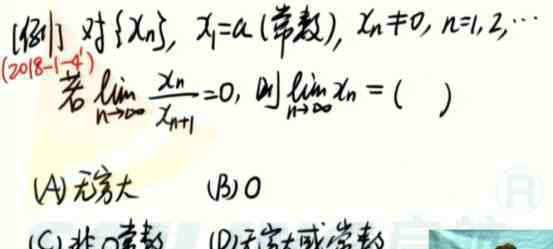 [例] 对{xₙ}, x₁=a(常数), xₙ≠0, n=1,2,⋯
(2018-1-4')
若 lim_{n→∞} xₙ/xₙ₊₁=0, 则 lim_{n→∞} xₙ = ( )
(A) 无穷大 (B) 0
(C) 非0常数 (D) 无穷大或常数